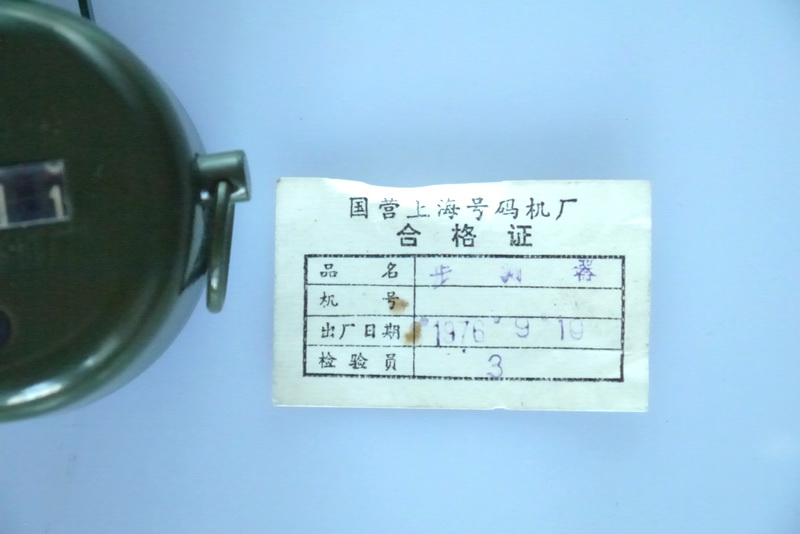 国营上海号码机厂
合格证
品名 步测器
机号
出厂日期 1976 9 10
检验员 3
1